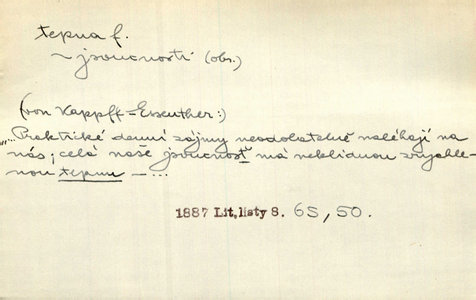 tepna f.
~ jsoucnosti (obr.)
(von Kapff-Essenther:)
„...Praktické denní zájmy neodolatelně naléhají na
nás; celá naše jsoucnost má neklidnou zrychle-
nou tepnu — ...
1887 Lit. listy 8. 6S, 50.